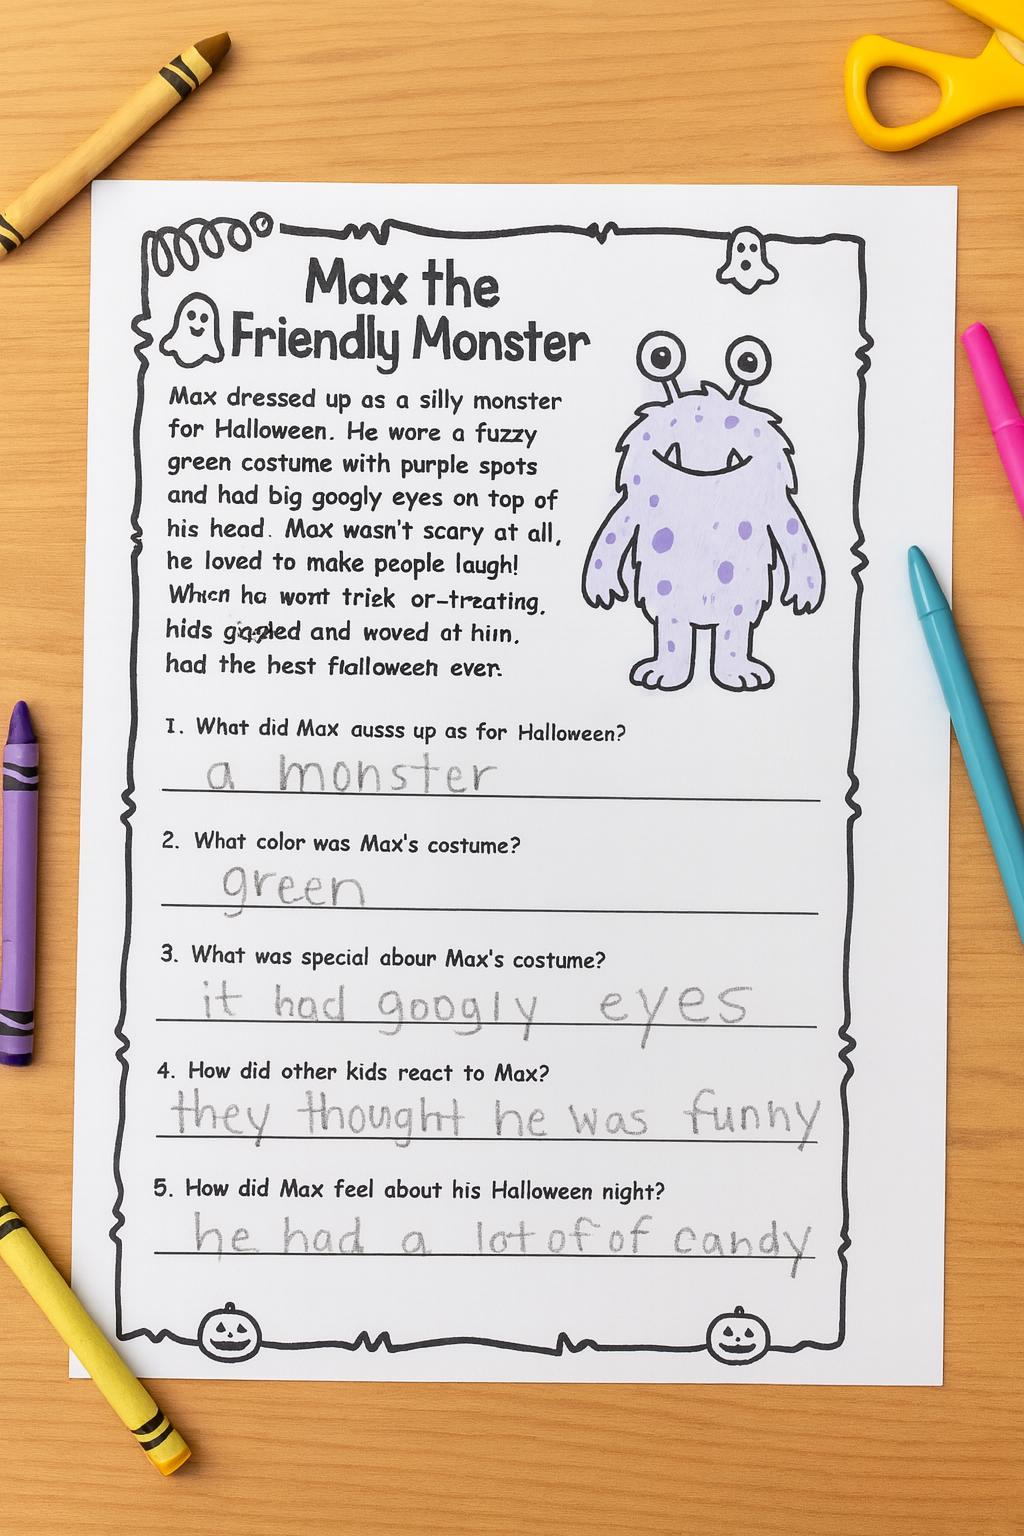 Max the
Friendly Monster
Max dressed up as a silly monster
for Halloween. He wore a fuzzy
green costume with purple spots
and had big googly eyes on top of
his head. Max wasn't scary at all,
he loved to make people laugh!
ha wont or-trzating,
hids and woved at
had the hest ever.
1. What did Max ausss up as for Halloween?
a monster
2. What color was Max's costume?
green
3. What was special abour Max's costume?
it had googly eyes
4. How did other kids react to Max?
they thought he was funny
5. How did Max feel about his Halloween night?
he had a lot of of candy